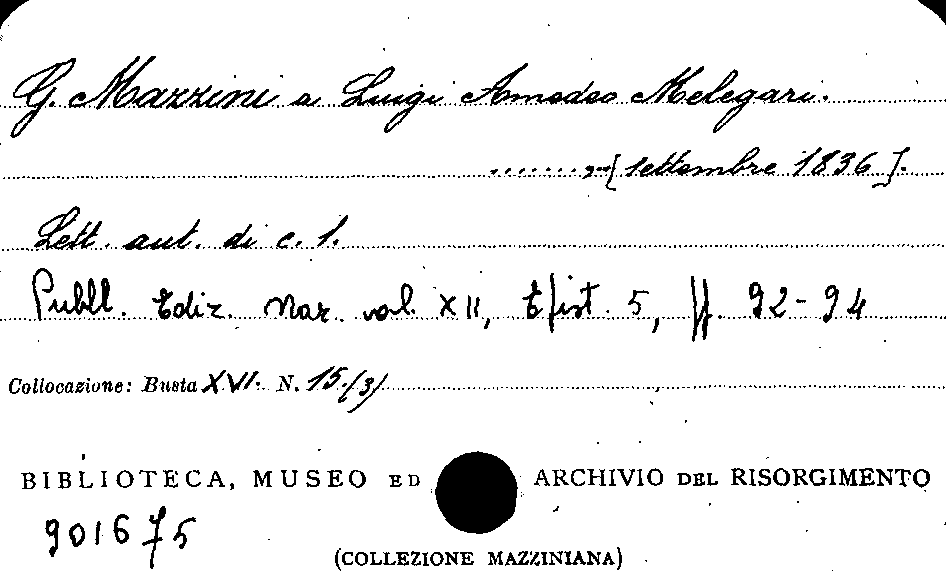 G. Mazzini a Luigi Amedeo Melegari.
.......,-[settembre 1836].
Lett. aut. di c. 1.
Pubbl. Ediz. Naz. vol. XII, Epist. 5, pp. 92-94
Collocazione: Busta XVI. N. 15/(3)
BIBLIOTECA, MUSEO ED ARCHIVIO DEL RISORGIMENTO
901675
(COLLEZIONE MAZZINIANA)